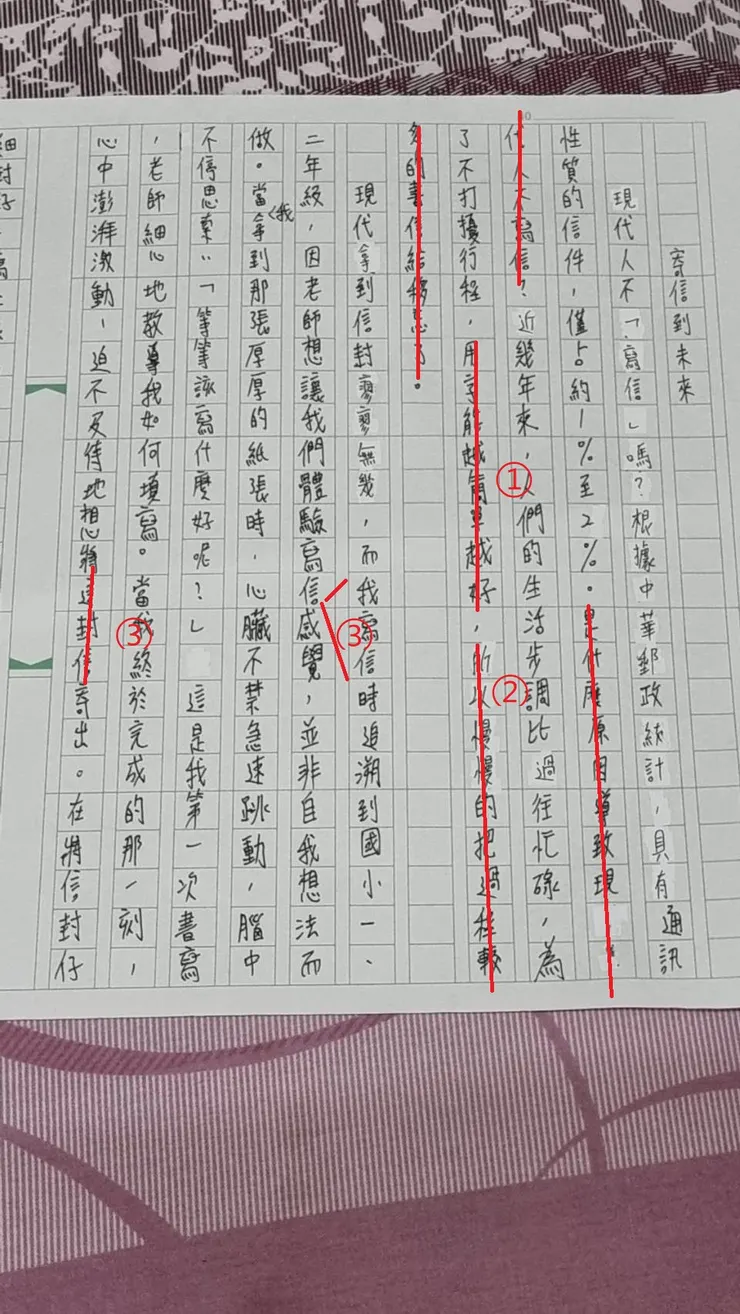 寄信到未來
現代人不「寫信」嗎？根據中華郵政統計，具有通訊
性質的信件，僅占約1%至2%。是什麼原因導致現
代人不寫信？近幾年來，人們的生活步調比過往忙碌，為
了不打擾行程，用字能越簡單越好，所以慢慢的把過程較
多的書信給移忘了。
現代拿到信封寥寥無幾，而我寫信時追溯到國小一、
二年級，因老師想讓我們體驗寫信感覺，並非自我想法而
做。當我拿到那張厚厚的紙張時，心臟不禁急速跳動，腦中
不停思索：「等等該寫什麼好呢？」這是我第一次書寫
，老師細心地教導我如何填寫。當我終於完成的那一刻，
心中澎湃激動，迫不及待地想將這封信寄出。在將信封仔
細封好
①
②
③
③